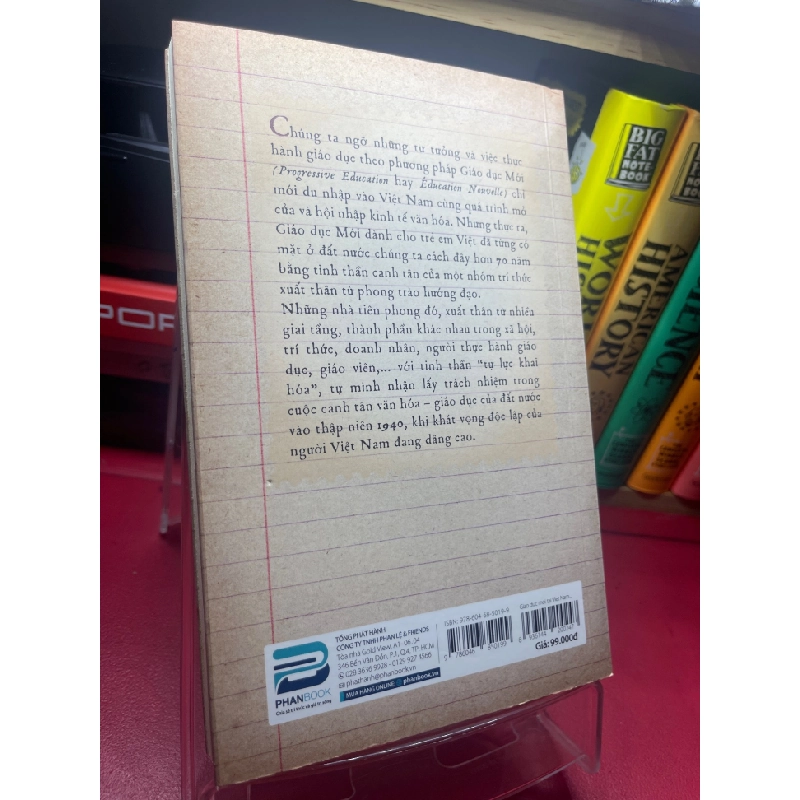 Chúng ta ngỡ những tư tưởng và việc thực
hành giáo dục theo phương pháp Giáo dục Mới
(Progressive Education hay Éducation Nouvelle) chỉ
mới du nhập vào Việt Nam cùng quá trình mở
cửa và hội nhập kinh tế văn hóa. Nhưng thực ra,
Giáo dục Mới dành cho trẻ em Việt đã từng có
mặt ở đất nước chúng ta cách đây hơn 70 năm
bằng tinh thần canh tân của một nhóm trí thức
xuất thân từ phong trào hướng đạo.
Những nhà tiên phong đó, xuất thân từ nhiều
giai tầng, thành phần khác nhau trong xã hội,
trí thức, doanh nhân, người thực hành giáo
dục, giáo viên,... với tinh thần "tự lực khai
hóa", tự mình nhận lấy trách nhiệm trong
cuộc canh tân văn hóa – giáo dục của đất nước
vào thập niên 1940, khi khát vọng độc lập của
người Việt Nam đang dâng cao.
PHANBOOK
TỔNG PHÁT HÀNH
CÔNG TY TNHH PHAN LÊ & FRIENDS
346 Bến Vân Đồn, P.1, Q.4, TP. HCM
MUA HÀNG ONLINE phanbook.vn
ISBN:
Giá: 99.000đ
BIG FAT NOTEBOOK
WORLD HISTORY
AMERICAN HISTORY
SCIENCE
POR